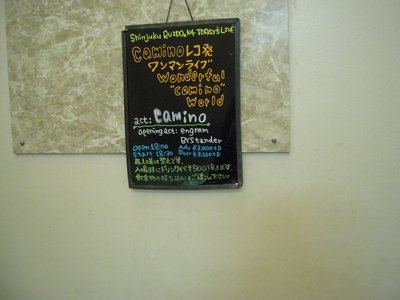 Shinjuku RUIDO K4 TODAY'S LIVE
Caminoレコ発
ワンマンライブ
Wonderful
"camino"
World
act: camino
Opening act: engram
BYStander
Open 18:00 Adv ¥3,000+D
Start 18:30 Door ¥3,500+D
再入場は禁止です。
入場時にドリンク代¥500頂きます。
飲食物の持ち込みはご遠慮下さい。